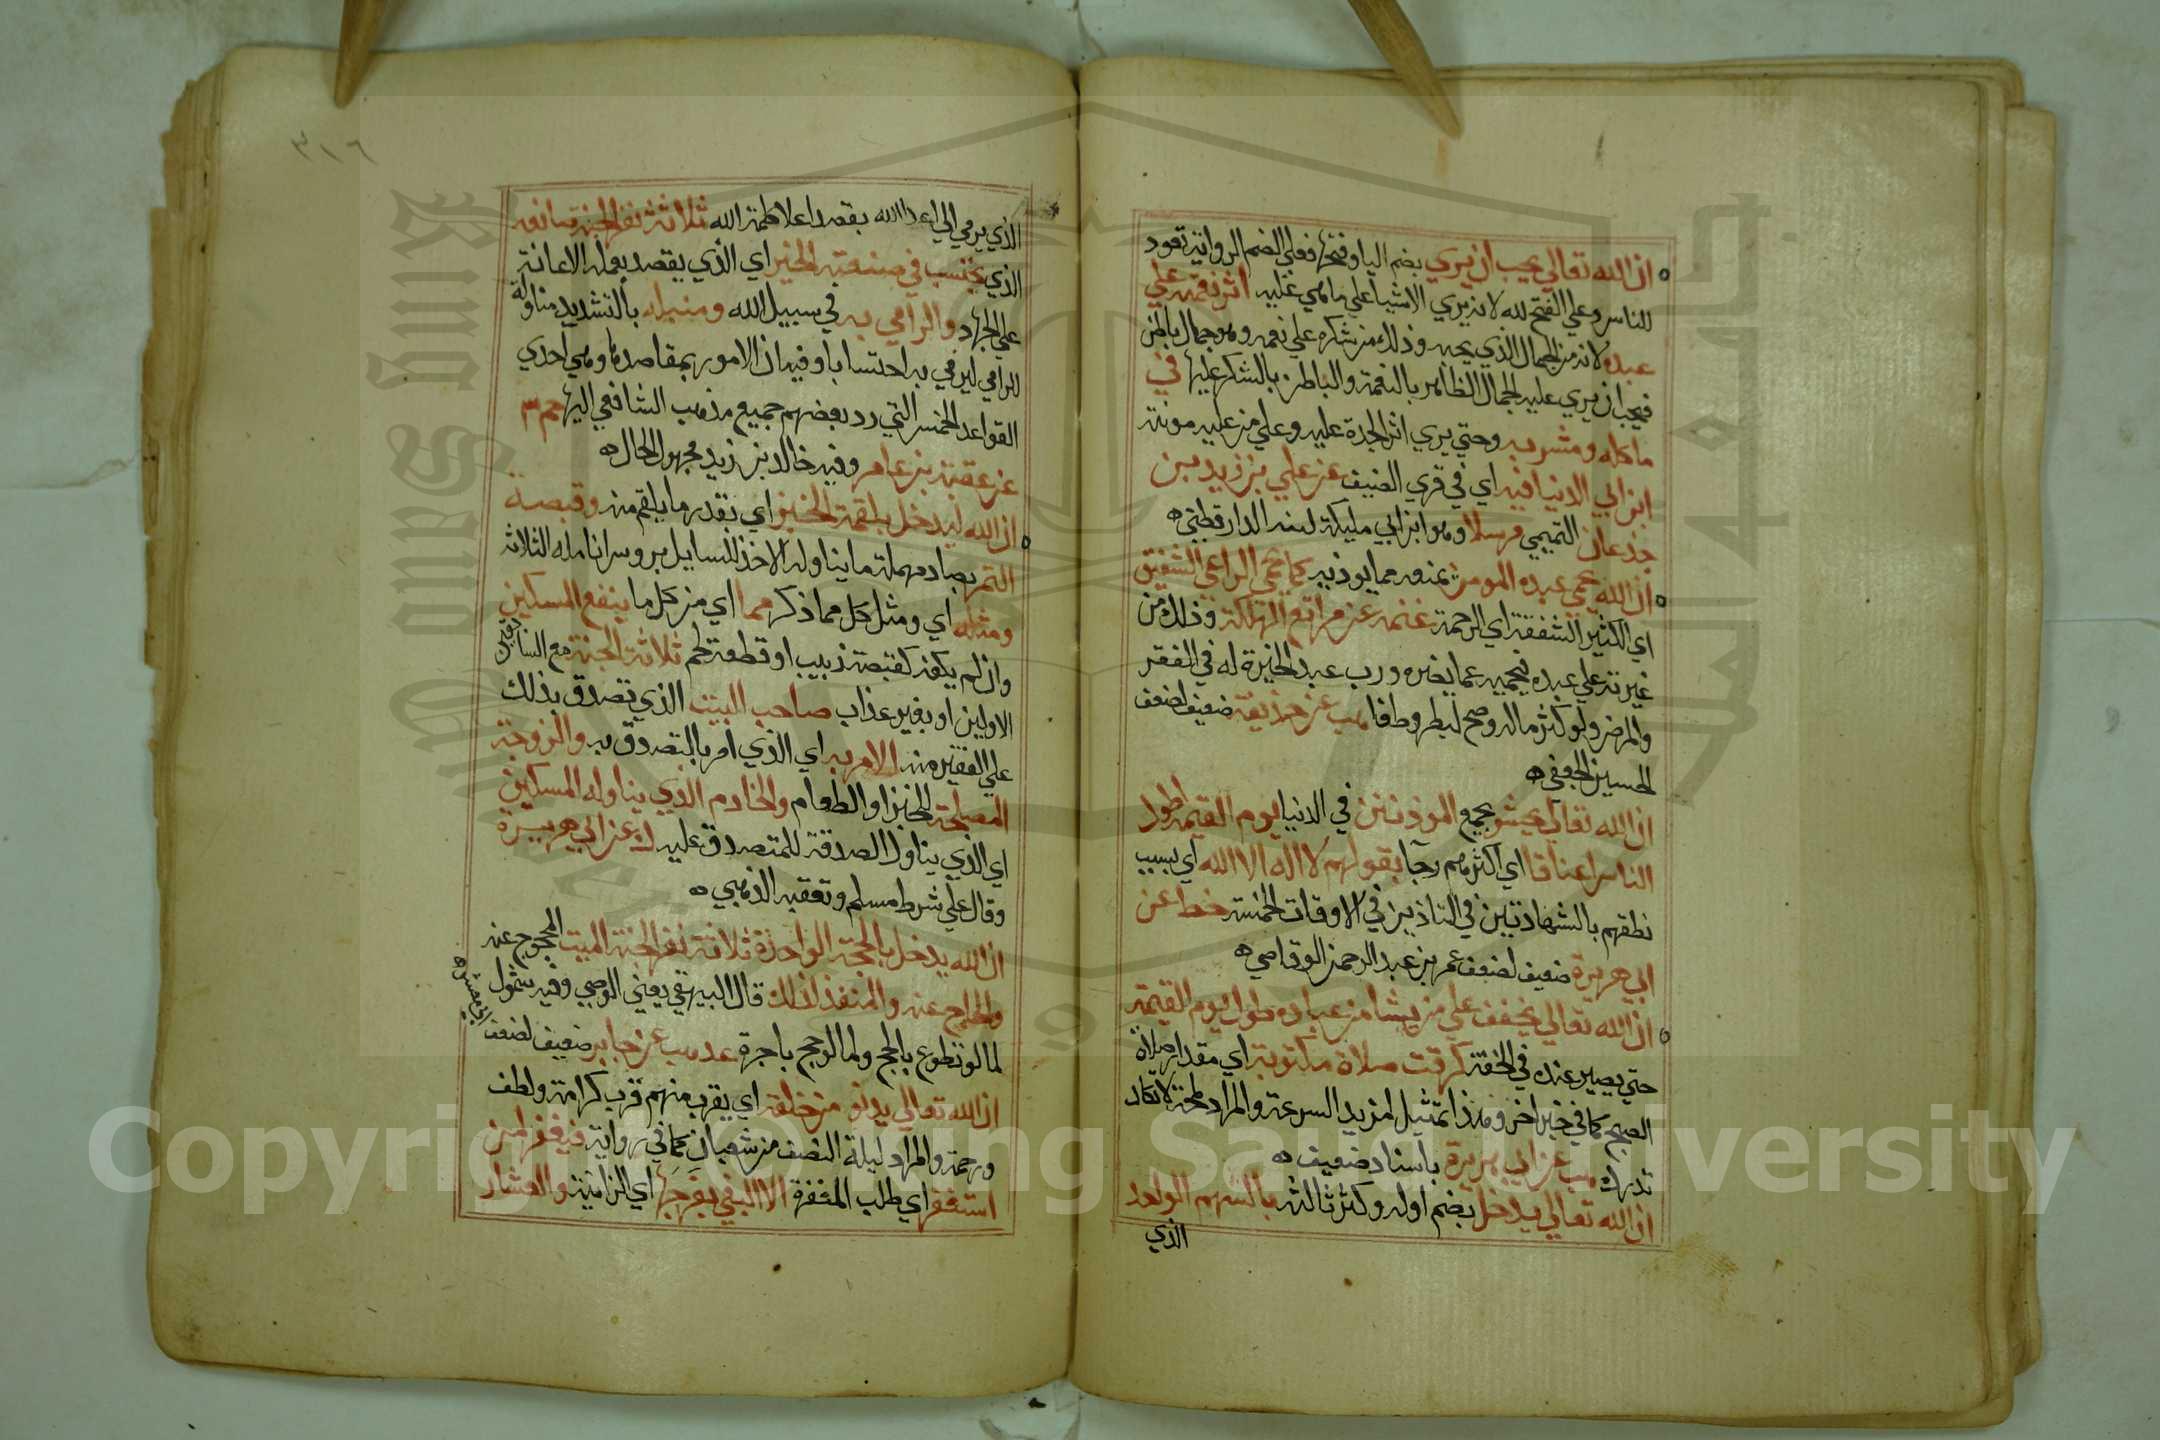 ان الله تعالي يحب ان يري بضم اليا وفتحها فعلي الضم الرواية تعود
للناس وعلي الفتح لله لانه يري الاشيا علي ما هي عليه اثر نعمته علي
عبده لانه من الجمال الذي يحبه وذلك من شكره علي نعمه وهو جمال باطن
فيحب ان يري عليه الجمال الظاهر بالنعمة والباطن بالشكر عليها في
ماكله ومشربه وحتي يري اثر الجدة عليه وعلي من عليه مونته
ابن ابي الدنيا فيه اي في قري الضيف عن علي بن زيد بن
جذعان التميمي مرسلا وهو ابن ابي مليكة لينه الدارقطني ه
ان الله يحمي عبده المومن يمنعه مما يوذيه كما يحمي الراعي الشفيق
اي الكثير الشفقة اي الرحمة غنمه عن مراتع الهلكة وذلك من
غيرته علي عبده فيحميه عما يضره ورب عبد الخيرة له في الفقر
والمرض ولو كثر ماله وصح لبطر وطغا هب عن حذيفة ضعيف لضعف
الحسين الجعفي ه
ان الله تعالي يحشر يجمع الموذنين في الدنيا يوم القيمة اطول
الناس اعناقا اي اكثرهم رجا بقولهم لا اله الا الله اي بسبب
نطقهم بالشهادتين في التاذين في الاوقات الخمسة خط عن
ابي هريرة ضعيف لضعف عمر بن عبد الرحمن الوقاصي ه
ان الله تعالي يخفف علي من يشا من عباده طول يوم القيمة
حتي يصير عنده في الخفة كوقت صلاة مكتوبة اي مقدار صلاة
الصبح كما في خبر اخر وهذا تمثيل لمزيد السرعة والمراد لمحة لا تكاد
تدرك هب عن ابي هريرة باسناد ضعيف ه
ان الله تعالي يدخل بضم اوله وكثر ثالثه بالسهم الواحد
الذي
٣١٦
الذي يرمي الي اعدا الله بقصد اعلا كلمة الله ثلاثة نفر الجنة صانعه
الذي يحتسب في صنعته الخير اي الذي يقصد بعمله الاعانة
علي الجهاد والرامي به في سبيل الله ومنبله بالتشديد مناوله
للرامي ليرمي به احتسابا وفيه ان الامور بمقاصدها وهي احدي
القواعد الخمس التي رد بعضهم جميع مذهب الشافعي اليها حم ٣
عن عقبة بن عامر وفيه خالد بن زيد مجهول الحال ه
ان الله ليدخل بلقمة الخبز اي بقدر ما يلقم منه وقبصة
التمر بصاد مهملة ما يناوله الاخذ للسايل بروس انامله الثلاث
ومثله اي ومثل كل مما ذكر مما اي من كل ما ينفع المسكين
وان لم يكن كقبصة زبيب او قطعة لحم ثلاثة الجنة مع السابقين
الاولين او بغير عذاب صاحب البيت الذي تصدق بذلك
علي الفقير منه الامر به اي الذي امر بالتصدق به والزوجة
المصلحة للخبز او الطعام والخادم الذي يناوله المسكين
اي الذي يناول الصدقة للمتصدق عليه ك عن ابي هريرة
وقال علي شرط مسلم وتعقبه الذهبي ه
ان الله يدخل بالحجة الواحدة ثلاثة نفر الجنة الميت المحجوج عنه
والحاج عنه والمنفذ لذلك قال البيهقي يعني الوصي وفيه شمول
لما لو تطوع بالحج ولما لو حج باجرة عد هب عن جابر ضعيف لضعف
ابي معشر ه
ان الله تعالي يدنو من خلقه اي يقرب منهم قرب كرامة ولطف
ورحمة والمراد ليلة النصف من شعبان كما في رواية فيغفر لمن
استغفر اي طلب المغفرة الا البغي بفرجها اي الزانية والعشار
Copyright © King Saud University